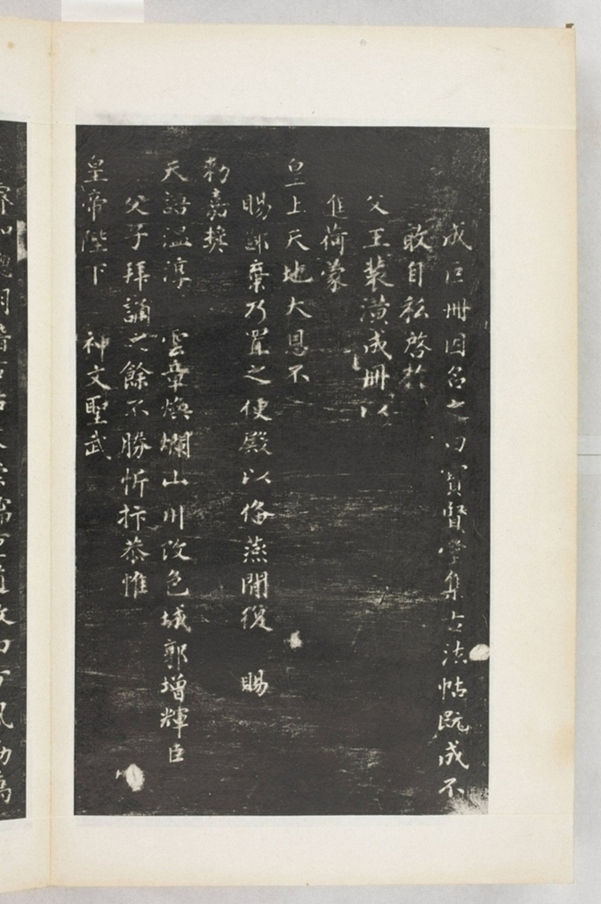 成巨册因名之曰寳賢堂集古法帖既成不
敢自私啓於
父王装潢成册以
進荷蒙
皇上天地大恩不
賜棄乃置之便殿以備燕閒復 賜
勑嘉奬
天語温淳 雲章焕爛山川改色城郭增輝臣
父子拜誦之餘不勝忻抃恭惟
皇帝陛下 神文聖武